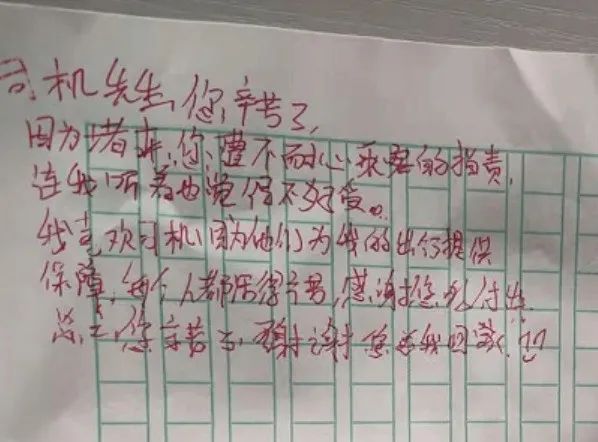 司机先生,您辛苦了,
因为堵车,你遭不耐心乘客的指责,
连我听着也觉得不好受。
我喜欢司机因为他们为我的出行提供
保障,每个人都活得辛苦,感谢您的付出
总之,您辛苦了,谢谢您送我回家